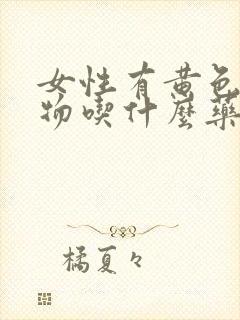 女性有黄色
物喫什麽藥
橘夏々